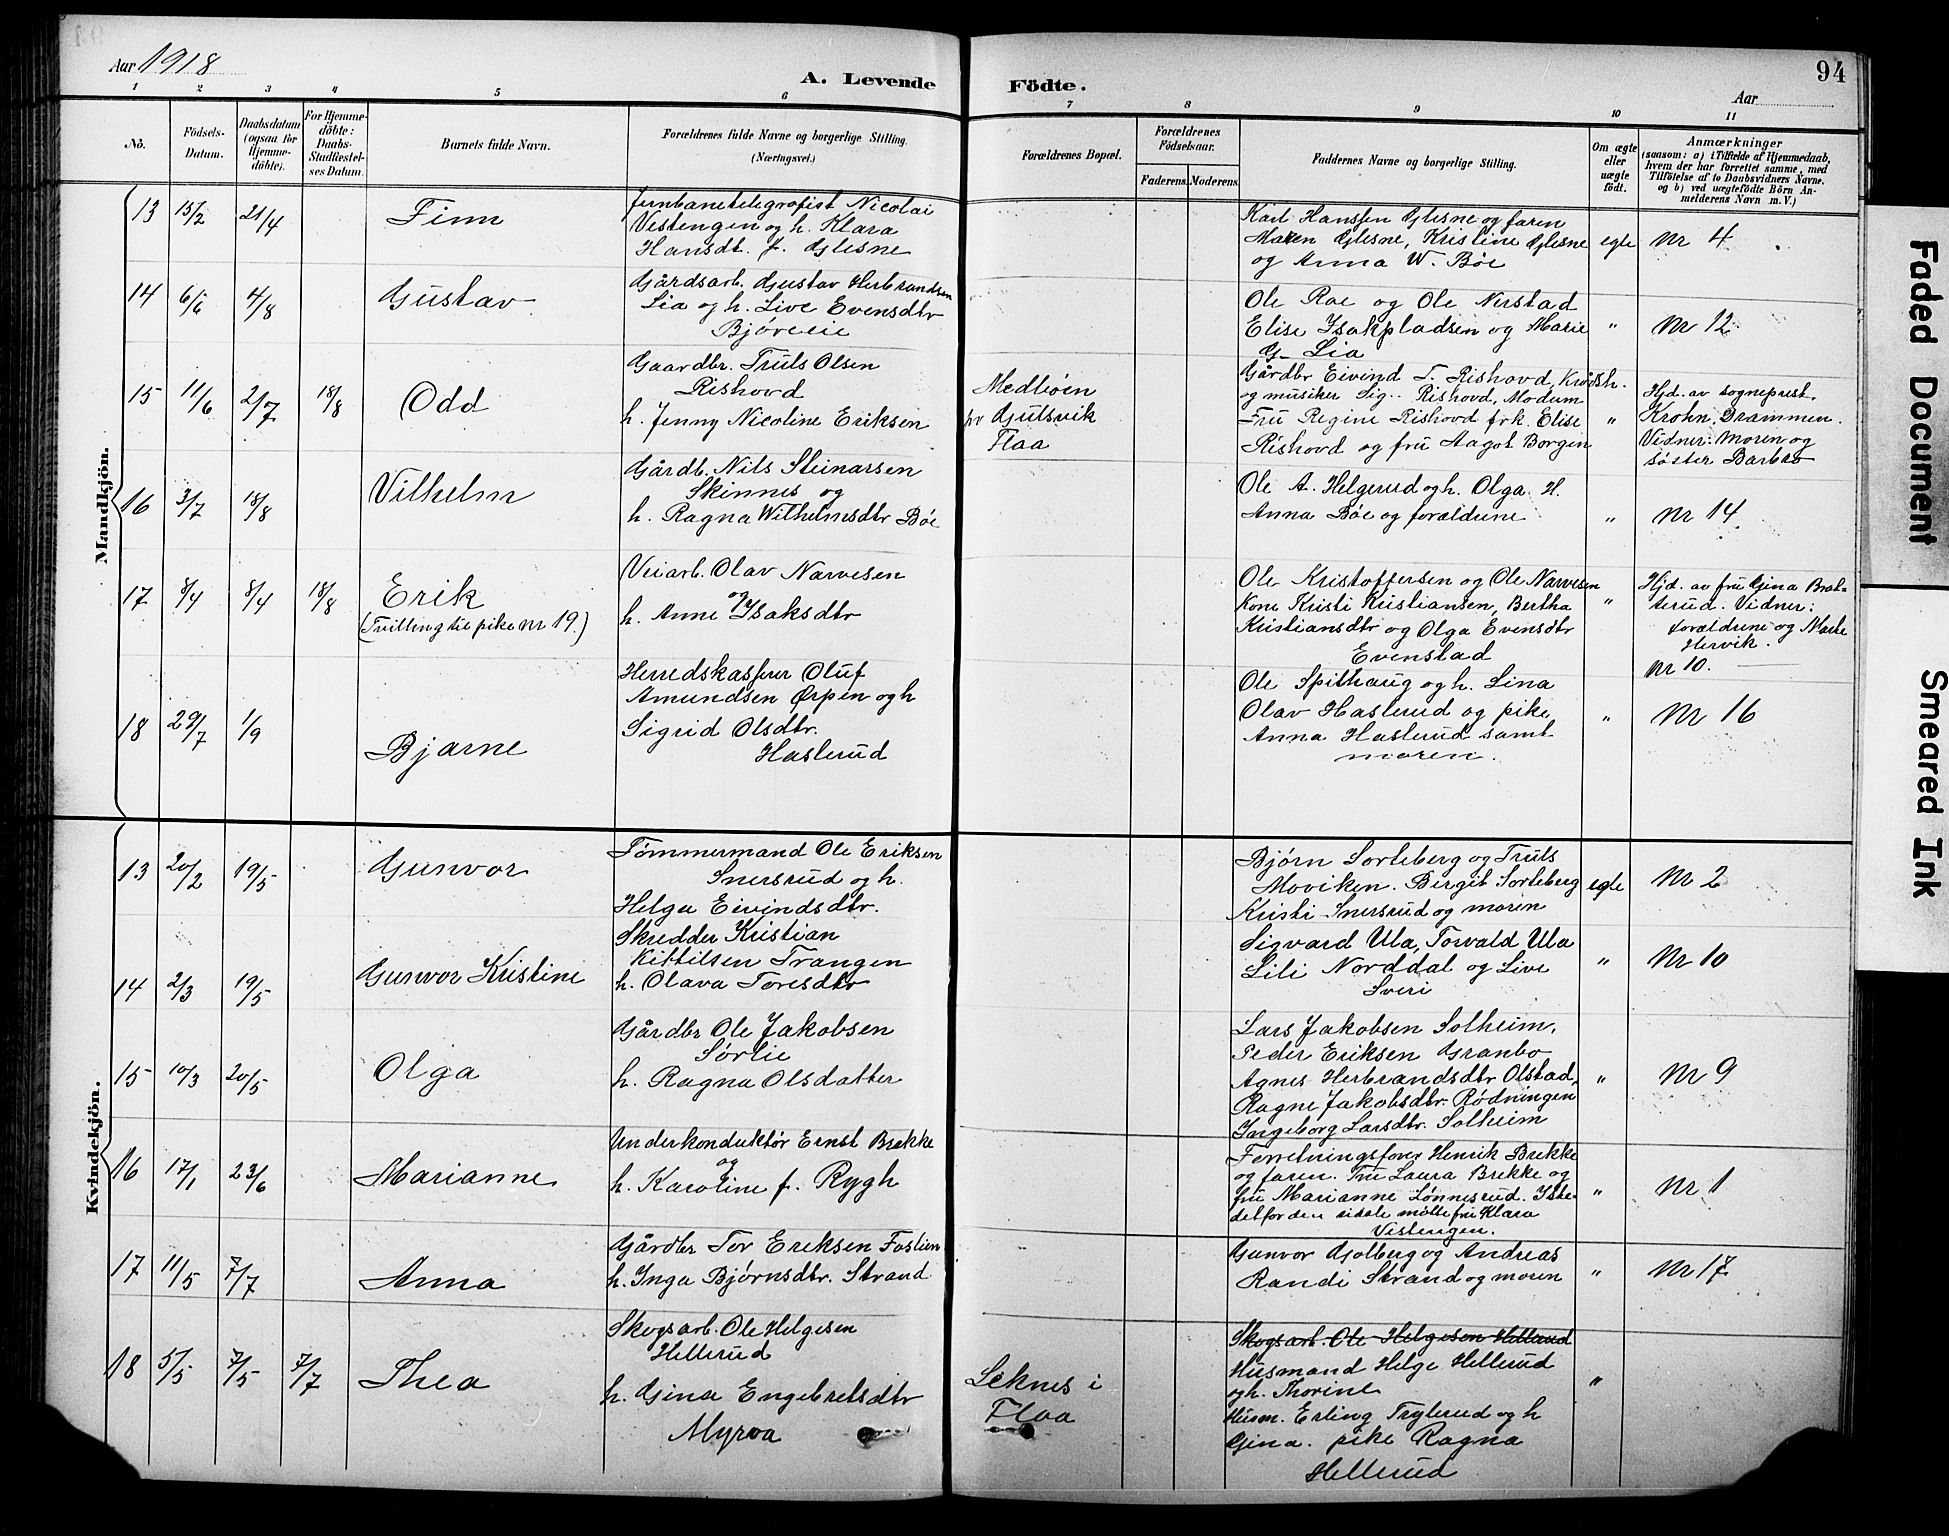 Aar 1918
A. Levende Födte.
94
Aar
1 2 3 4 5 6 7 8 9 10 11
No.
Födsels-
Datum.
Daabsdatum
(ogsaa for
Hjemme-
döbte).
For Hjemme-
döbte:
Daabs-
Stadfæstel-
ses Datum.
Barnets fulde Navn.
Forældrenes fulde Navne og borgerlige Stilling.
(Næringsvei.)
Forældrenes Bopæl.
Forældrenes
Födselsaar.
Faderens. Moderens.
Faddernes Navne og borgerlige Stilling.
Om ægte
eller
uægte
födt.
Anmærkninger
(saasom: a) i Tilfælde af Hjemmedaab,
hvem der har forrettet samme, med
Tilföielse af to Daabsvidners Navne.
og b) ved uægtefödte Börn An-
melderens Navn m. V.)
Mandkjön.
13 15/2 21/4
Finn
Jernbanetelegrafist Nicolai
Vestengen og h. Klara
Hansdt. f. Glesne
Karl Hansen Glesne og faren
Maren Glesne, Kristine Glesne
og Anna W. Bøe
egte
Nr 4
14 6/6 4/8
Gustav
Gårdsarb. Gustav Herbrandsen
Lia og h. Live Evensdtr
Bjøreeie
Ole Roe og Ole Nerstad
Elise Isakpladsen og Marie
G- Lia
"
Nr 12
15 11/6 2/7 18/8
Odd
Gaardbr. Truls Olsen
Rishovd
h. Jenny Nicoline Eriksen
Medbøen
pr Gulsvik
Flaa
Gårdbr Eivind T. Rishovd, Krødsh.
og musiker Sig.. Rishovd, Modum
Fru Regine Rishovd frk. Elise
Rishovd og fru Aagot Borgen
"
Hjd. av sogneprest
Krohn, Drammen.
Vidner: Moren og
søster Barbro
16 3/7 18/8
Vilhelm
Gårdb. Nils Steinarsen
Skinnes og
h. Ragna Wilhelmsdtr Bøe
Ole A. Helgerud og h. Olga H.
Anna Bøe og forældrene
"
Nr 14
17 8/4 8/4 18/8
Erik
(Tvilling til pike nr 19.)
Veiarb. Olav Narvesen
og
h. Anne Isaksdtr
Ole Kristoffersen og Ole Narvesen
Kone Kristi Kristiansen, Bertha
Kristiansdtr og Olga Evensdtr
Evenstad
"
Hjd. av fru Gina Brat-
terud. Vidner:
forældrene og Marie
Hervik.
Nr 10.
18 29/7 1/9
Bjarne
Herredskasserer Oluf
Amundsen Ørpen og h
Sigrid Olsdtr.
Haslerud
Ole Spithaug og h. Lina
Olav Haslerud og pike
Anna Haslerud samt
moren.
"
Nr 16
Kvindekjön.
13 20/2 19/5
Gunvor
Tømmermand Ole Eriksen
Snersrud og h.
Helga Eivindsdtr.
Bjørn Sorteberg og Truls
Moviken. Bergit Sorteberg
Kristi Snersrud og moren
egte
Nr 2
14 2/3 19/5
Gunvor Kristine
Skredder Kristian
Kittilsen Trangen
h. Olava Toresdtr
Sigvard Ula, Torvald Ula
Lili Norddal og Live
Sveri
"
Nr 10
15 10/3 20/5
Olga
Gårdbr Ole Jakobsen
Sørlie
h. Ragna Olsdatter
Lars Jakobsen Solheim,
Peder Eriksen Granbo
Agnes Herbrandsdtr Olstad,
Ragne Jakobsdtr. Rødningen
Ingeborg Larsdtr. Solheim
"
Nr 9
16 17/1 23/6
Marianne
Underkonduktør Ernst Brekke
og
h. Karoline f. Rygh
Forretningsfører Henrik Brekke
og faren. Fru Laura Brekke og
fru Marianne Lønnesrud. Iste-
detfor den sidste møtte fru Klara
Vestengen.
"
Nr 1
17 11/5 7/7
Anna
Gårdbr Tov Eriksen Foslien
h. Inga Bjørnsdtr. Strand
Gunvor Golberg og Andreas
Randi Strand og moren
"
Nr 17
18 5/5 7/5 7/7
Thea
Skogsarb. Ole Helgesen
Hellerud
h. Gina Engebretsdtr
Myrva
Seknes i
Flaa
Skogsarb. Ole Helgesen Hellerud
Husmand Helge Hellerud
og h. Thorine
Husm. Erling Trylerud og h
Gina. pike Ragna
Hellerud
"
Faded Document
Smeared Ink